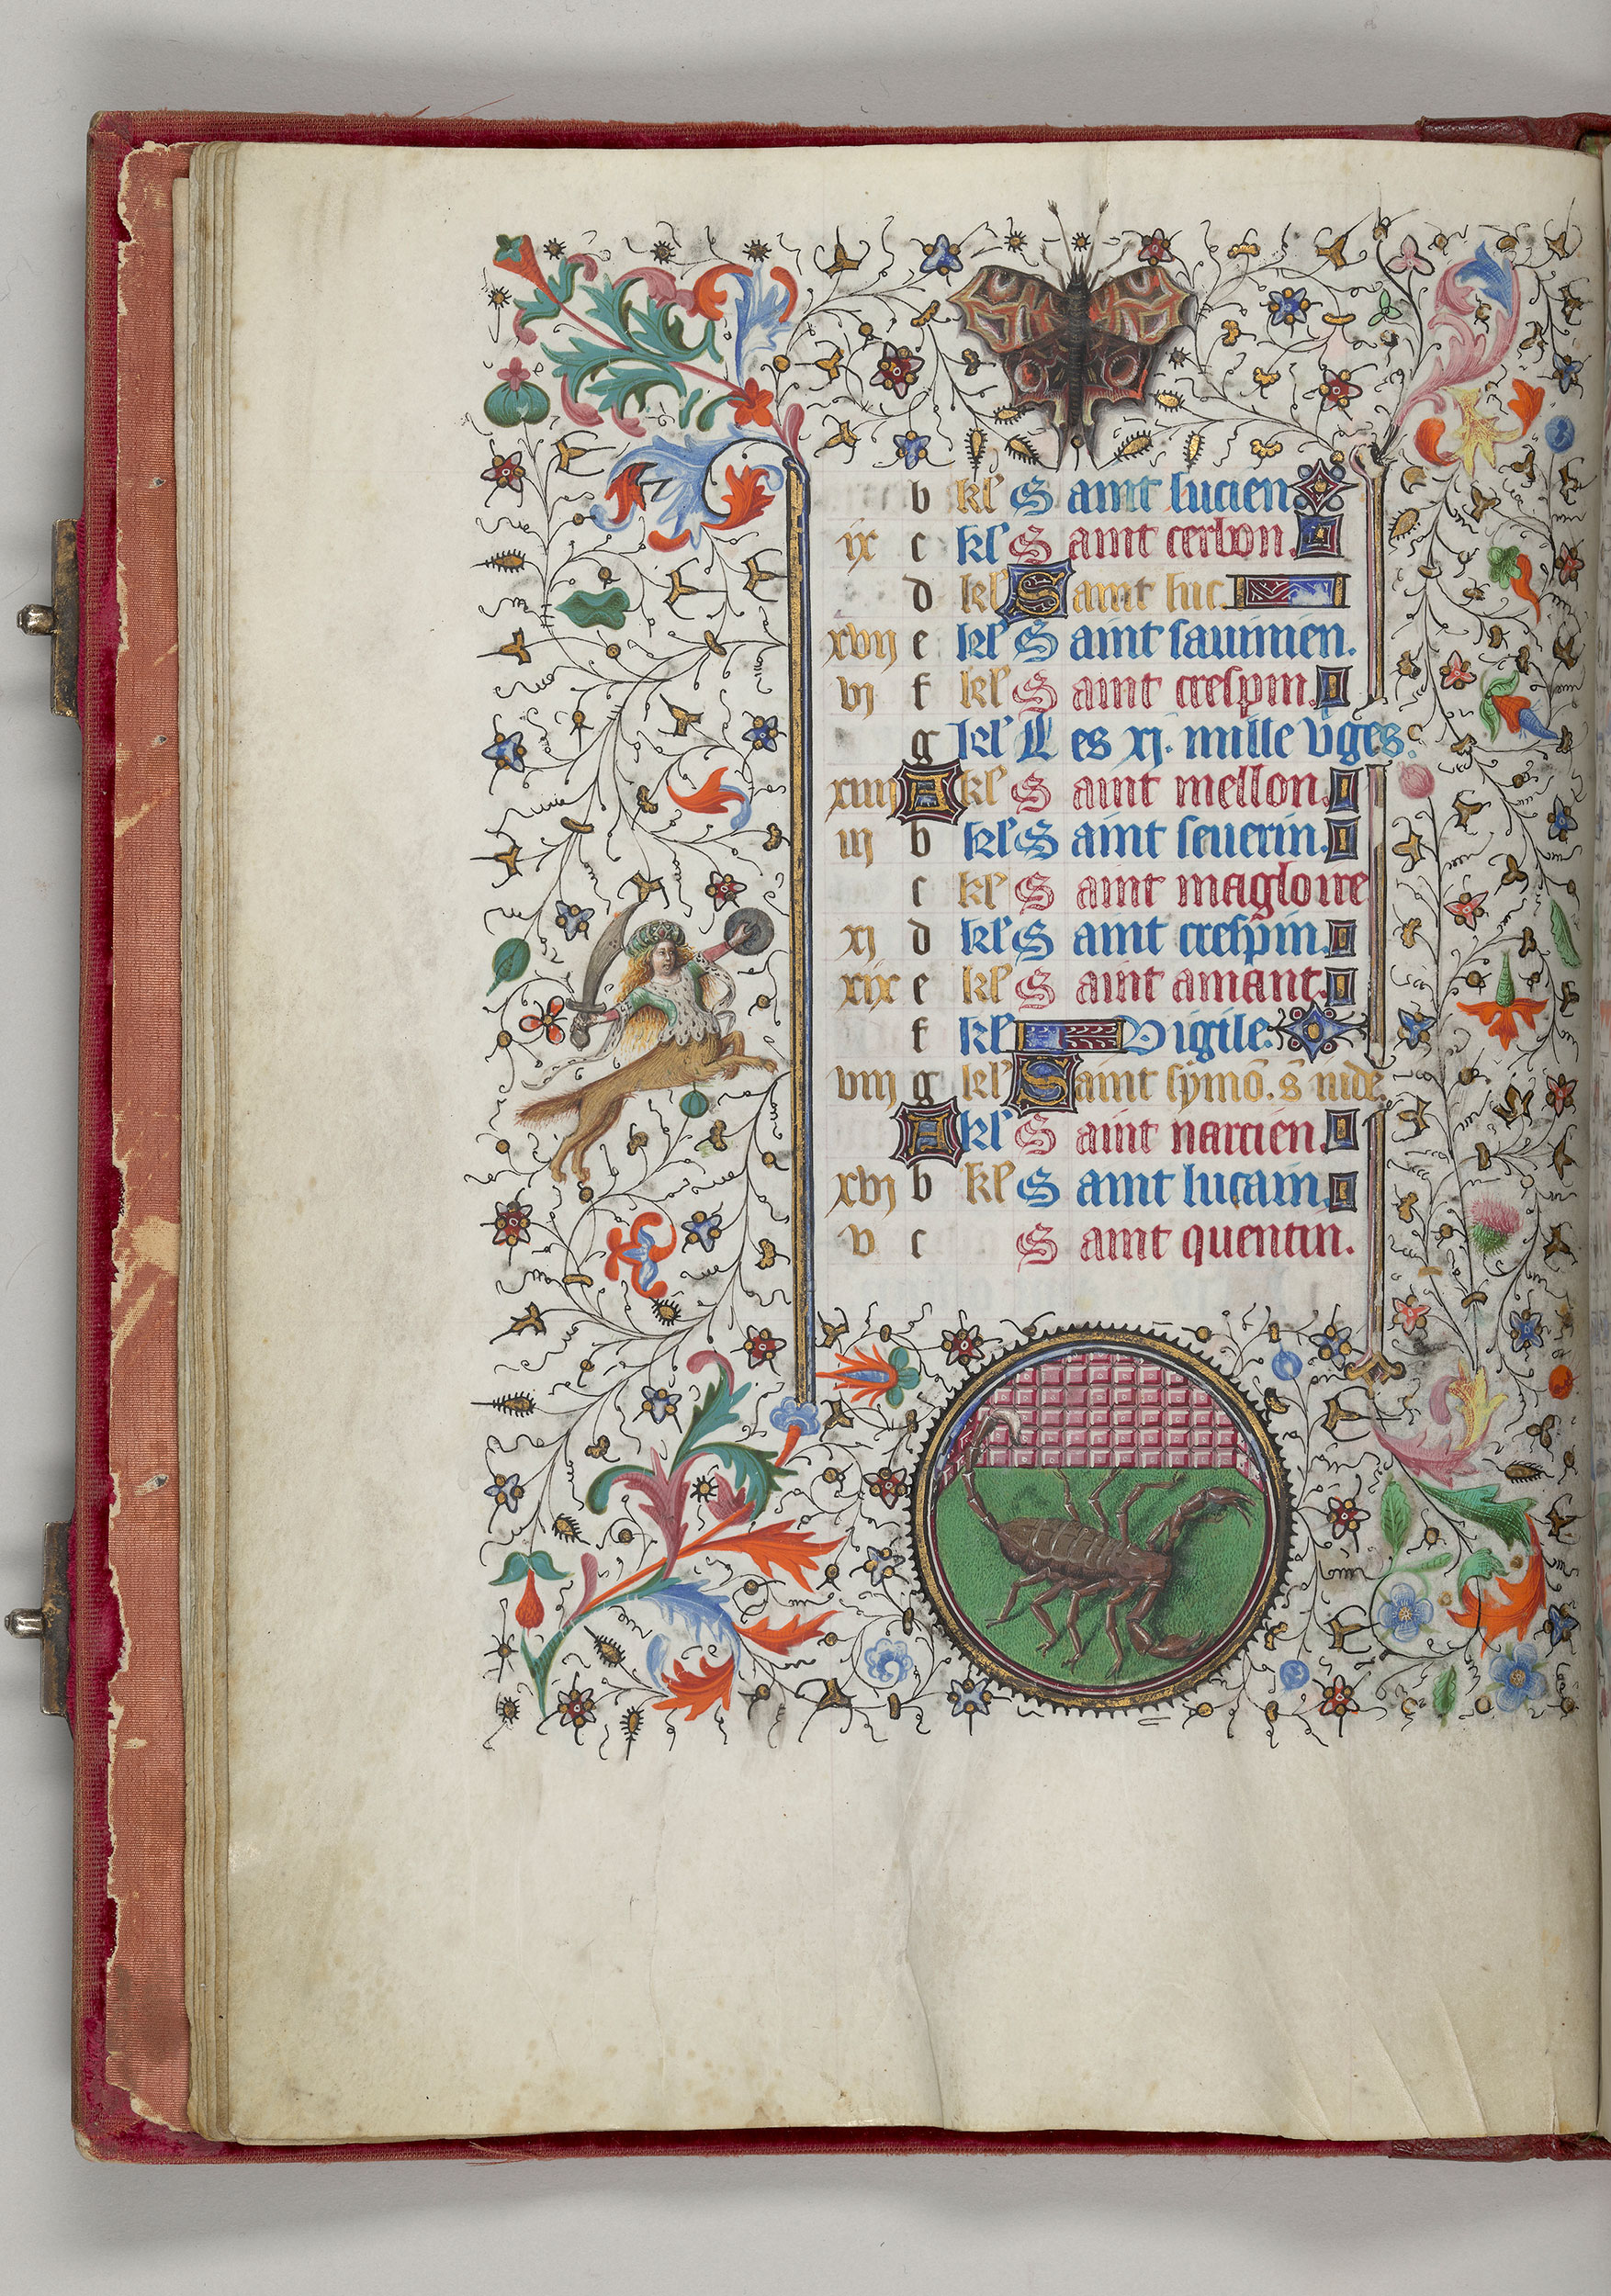 b kl Saint lucien
ix c kl Saint cerbon.
d kl Saint luc.
xvij e kl Saint sauinien.
vj f kl Saint crespin.
g kl Les xj. mille vges.
xiiij A kl Saint mellon.
iij b kl Saint seuerin.
c kl Saint magloire
xj d kl Saint crespin.
xix e kl Saint amant.
f kl Vigile.
viij g kl Saint symō. s̄ iude.
A kl Saint narcien.
xvj b kl Saint lucain.
v c Saint quentin.